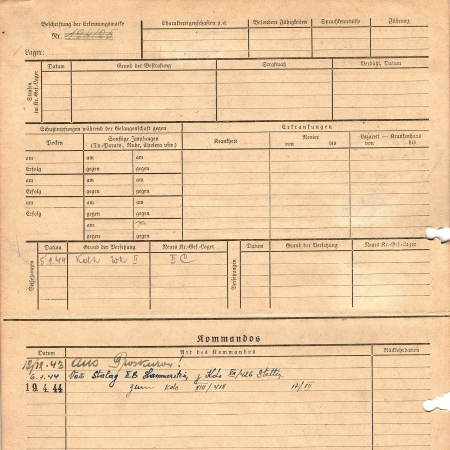 Beschriftung der Erkennungsmarke
Nr.
Charaktereigenschaften u.ä.
Besondere Fähigkeiten
Sprachkenntnisse
Führung
Lager:
Strafen im Kr.-Gef.-Lager
Datum
Grund der Bestrafung
Strafmaß
Verbüßt, Datum
Schutzimpfungen während der Gefangenschaft gegen
Erkrankungen
Pocken
Sonstige Impfungen
(Ty.-Paraty., Ruhr, Cholera usw.)
Krankheit
Revier
von bis
Lazarett — Krankenhaus
von bis
am am am
Erfolg gegen gegen
am am am
Erfolg gegen gegen
am am am
Erfolg gegen gegen
am am am
Erfolg gegen gegen
am
gegen gegen
Versetzungen
Datum
Grund der Versetzung
Neues Kr.-Gef.-Lager
Versetzungen
Datum
Grund der Versetzung
Neues Kr.-Gef.-Lager
5.1.44 II C
Kommandos
Datum
Art des Kommandos
Rückkehrdatum
aus Proskurov!
6.1.44 Stalag II B Hammerstein z Kdo Stettin
19.4.44 zum Kdo XIII/418